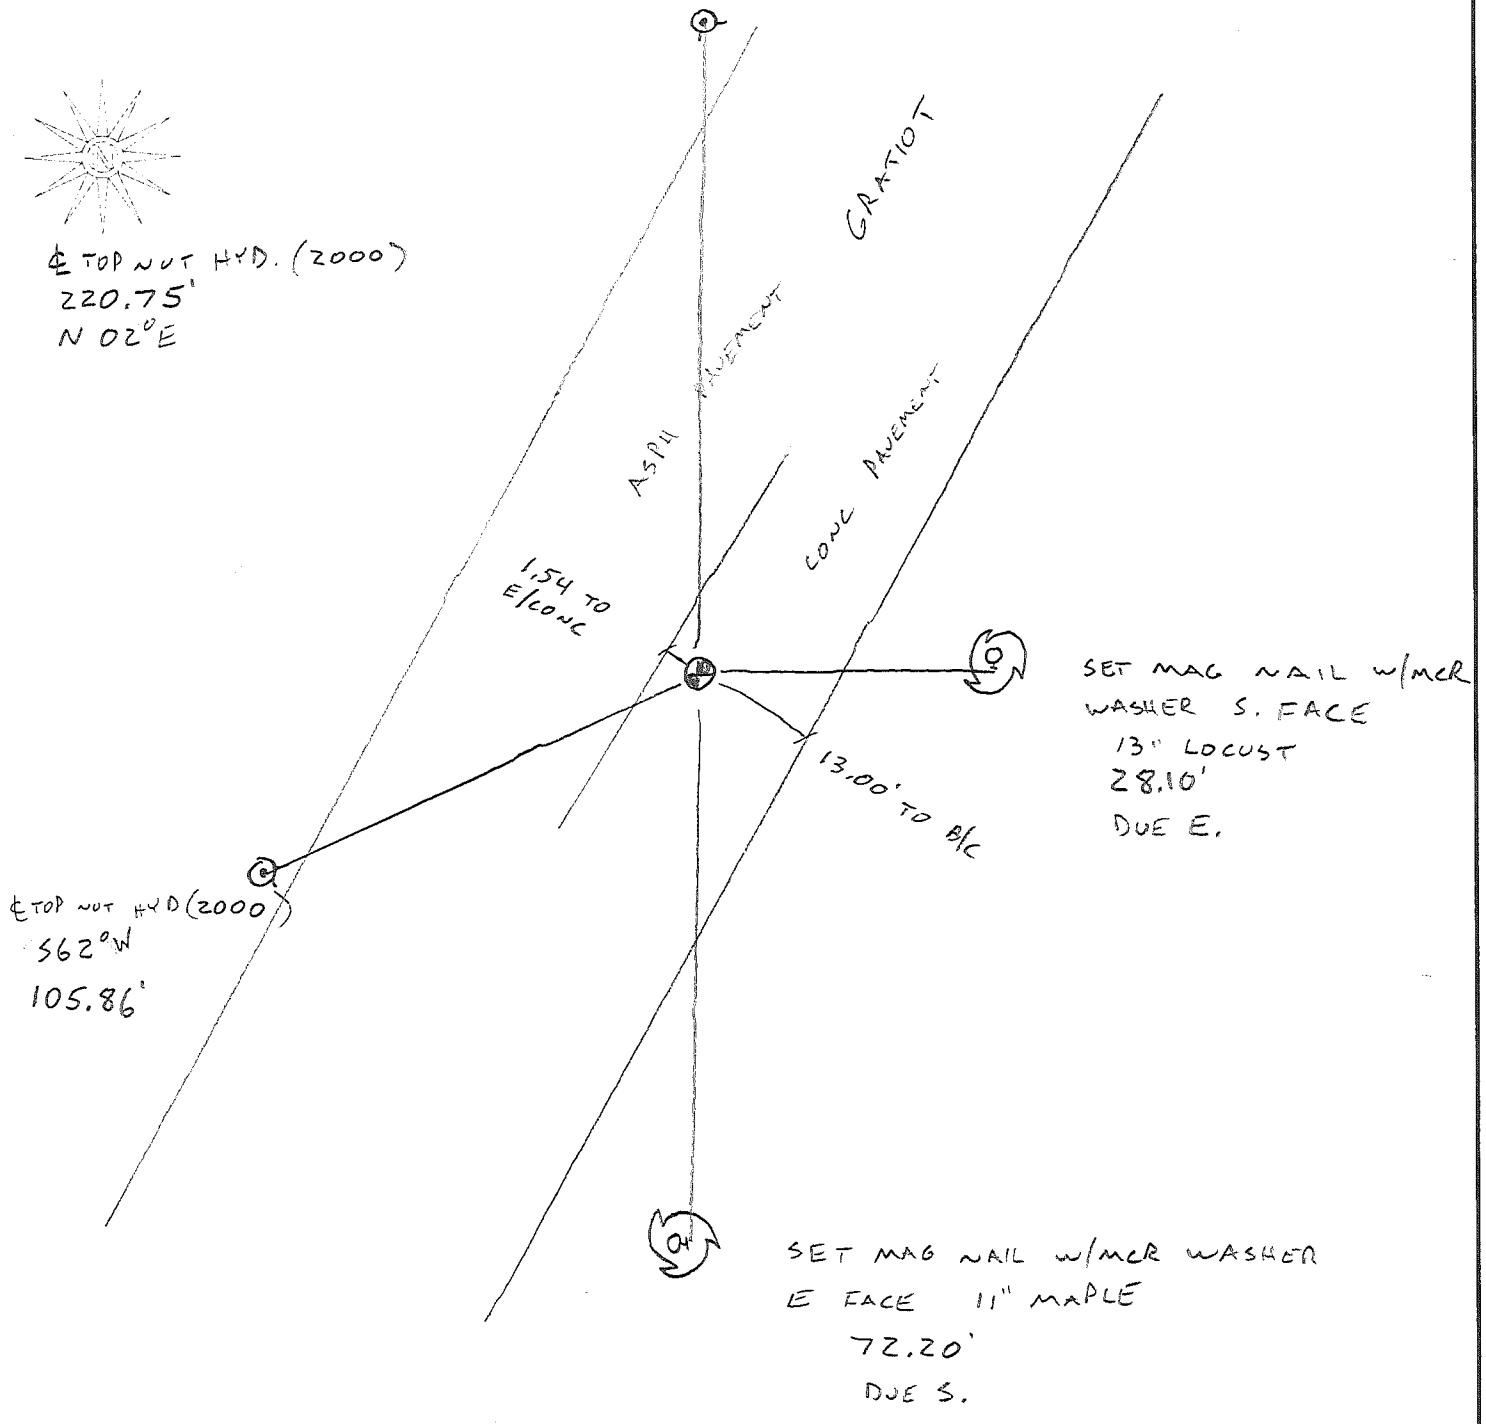 GRATIOT
℄ TOP NUT HYD. (2000)
220.75'
N 02°E
ASPH PAVEMENT
CONC PAVEMENT
1.54 TO
E/CONC
SET MAG NAIL W/MCR
WASHER S. FACE
13" LOCUST
28.10'
DUE E.
13.00' TO B/C
℄ TOP NUT HYD (2000)
S62°W
105.86'
SET MAG NAIL W/MCR WASHER
E FACE 11" MAPLE
72.20'
DUE S.